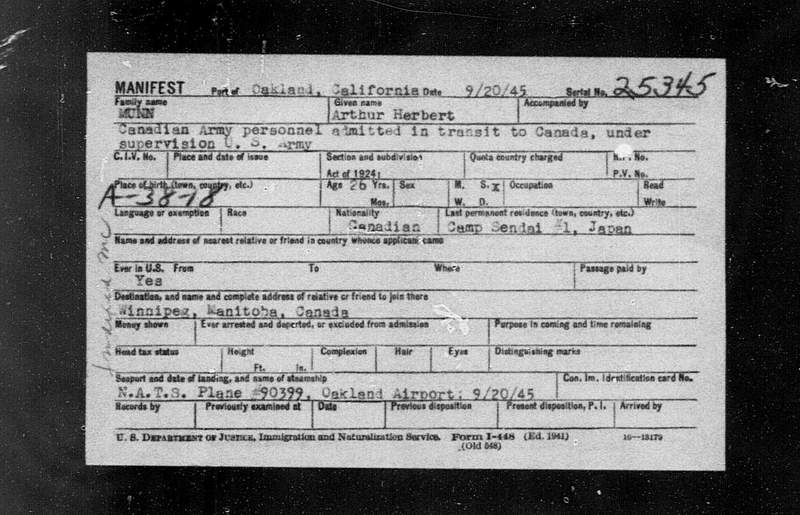 MANIFEST Port of Oakland, California Date 9/20/45 Serial No. 25345
Family name Given name Accompanied by
MUNN Arthur Herbert
Canadian Army personnel admitted in transit to Canada, under
supervision U. S. Army
C.I.V. No. Place and date of issue Section and subdivision Quota country charged R.P. No.
Act of 1924: P.V. No.
Place of birth (town, country, etc.) Age 26 Yrs. Sex M. S. x Occupation Read
A-38-18 Mos. W. D. Write
Language or exemption Race Nationality Last permanent residence (town, country, etc.)
Canadian Camp Sendai #1, Japan
Name and address of nearest relative or friend in country whence applicant came
Ever in U.S. From To Where Passage paid by
Yes
Destination, and name and complete address of relative or friend to join there
Winnipeg, Manitoba, Canada
Money shown Ever arrested and deported, or excluded from admission Purpose in coming and time remaining
Head tax status Height Complexion Hair Eyes Distinguishing marks
Ft. In.
Seaport and date of landing, and name of steamship Con. Im. Identification card No.
N.A.T.S. Plane #90399, Oakland Airport: 9/20/45
Records by Previously examined at Date Previous disposition Present disposition, P. I. Arrived by
U. S. DEPARTMENT OF JUSTICE, Immigration and Naturalization Service. Form I-448 (Ed. 1941) 16—13179
(Old 548)
Indexed